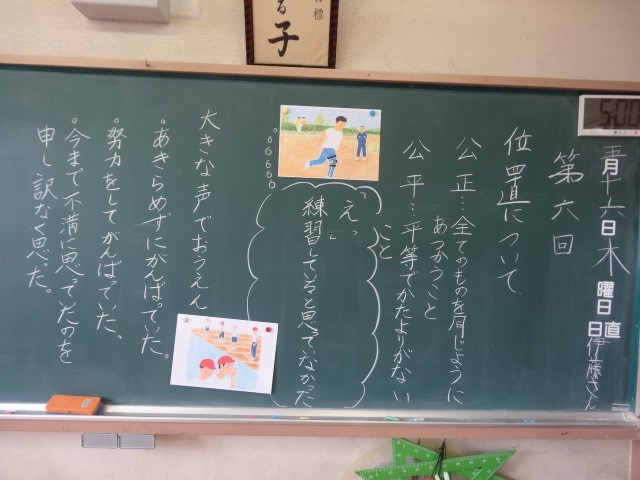 標
る子
十六日木曜日
日直
伊藤さん
第六回
位置について
公正…全てのものを同じように
あつかうこと
公平…平等でかたよりがない
こと
「えっ」
練習していると思っていなかった
大きな声でおうえん
。あきらめずにがんばっていた。
。努力をしてがんばっていた。
。今まで不満に思っていたのを
申し訳なく思った。